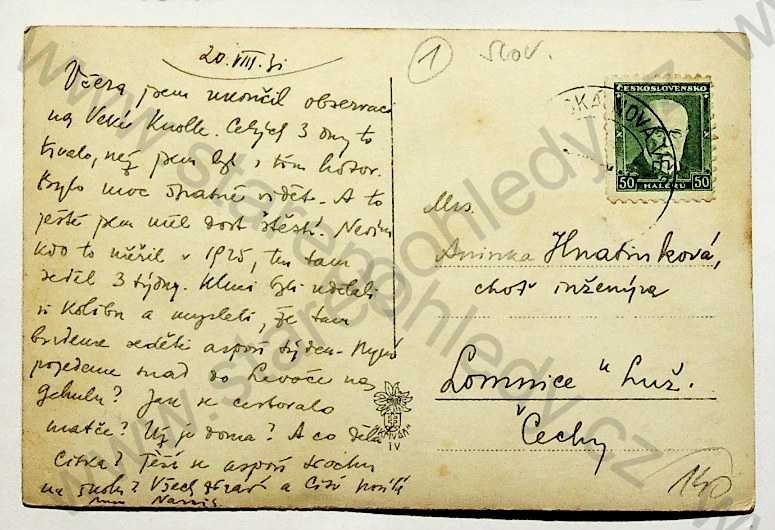 20. VIII. 31
Včera jsem ukončil observaci
na Velké Knole. Celých 3 dny to
trvalo, než jsem byl s tím hotov.
Bylo moc špatně vidět. A to
ještě jsem měl dost štěstí. Nevím
kdo to měřil v 1925, ten tam
seděl 3 týdny. Hlmi byli udělali
si kolibu a mysleli, že tam
budeme seděti aspoň týden. Nyní
pojedeme snad do Levoče na
Jak se cestovalo
matce? Už je doma? A co dělá
Citka? Těší se aspoň trochu
na školu? Všech zdraví a
1
Slov.
ČESKOSLOVENSKO
50 HALÉŘŮ 50
Mrs.
Aninka Hnatinková,
choť inženýra
Lomnice u Luž.
Čechy
"KRIVÁŇ"
IV
140
www.starepohledy.cz